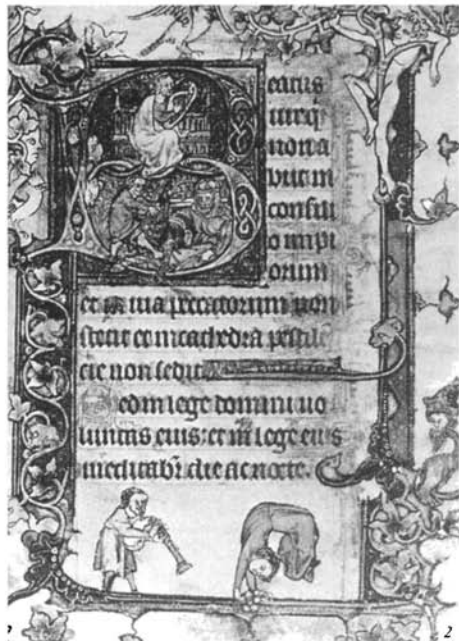 Beatus
uir q̇
non a
biit in
consili
o impi
orum
et in uia peccatorum non
stetit et in cathedra pestilē
cie non sedit
Sed in lege domini uo
luntas eius: et in lege eius
meditabr̄ die ac nocte.
2